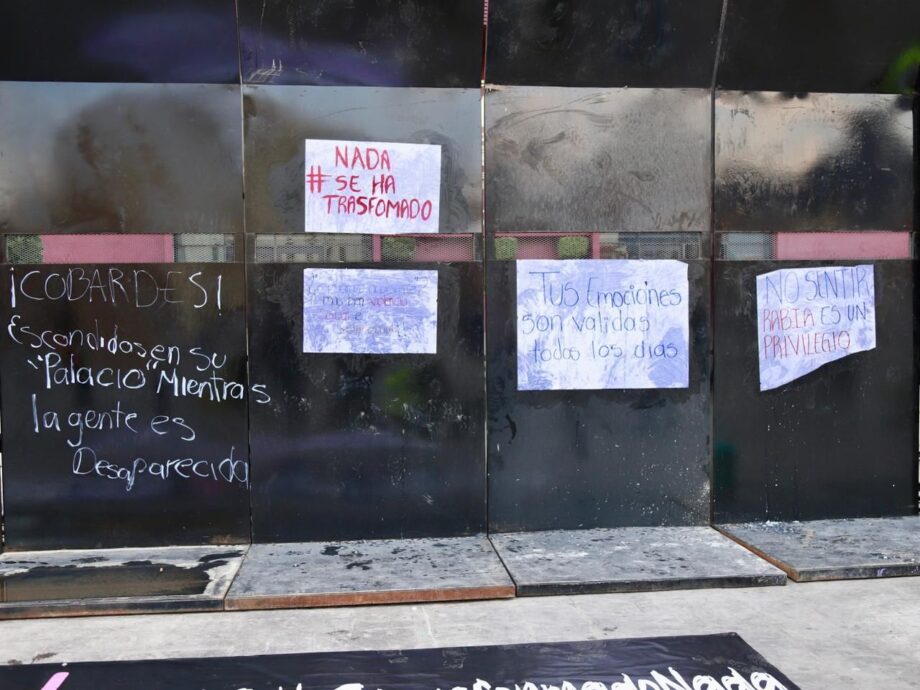 NADA
# SE HA
TRASFOMADO
¡COBARDES!
Escondidos en su
"Palacio" Mientras
la gente es
Desaparecida
Tus Emociones
son validas
todos los dias
NO SENTIR
RABIA ES UN
PRIVILEGIO